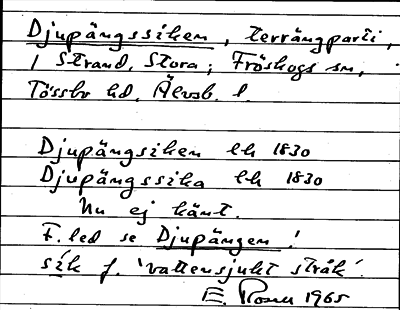 Djupängssiken, terrängparti,
i Strand, Stora; Fröskogs sn,
Tössbo hd, Älvsb. l.
Djupängsiken lk 1830
Djupängssika lk 1830
Nu ej känt.
F. led se Djupängen!
sik f. 'vattensjukt stråk'.
E. Rosen 1965